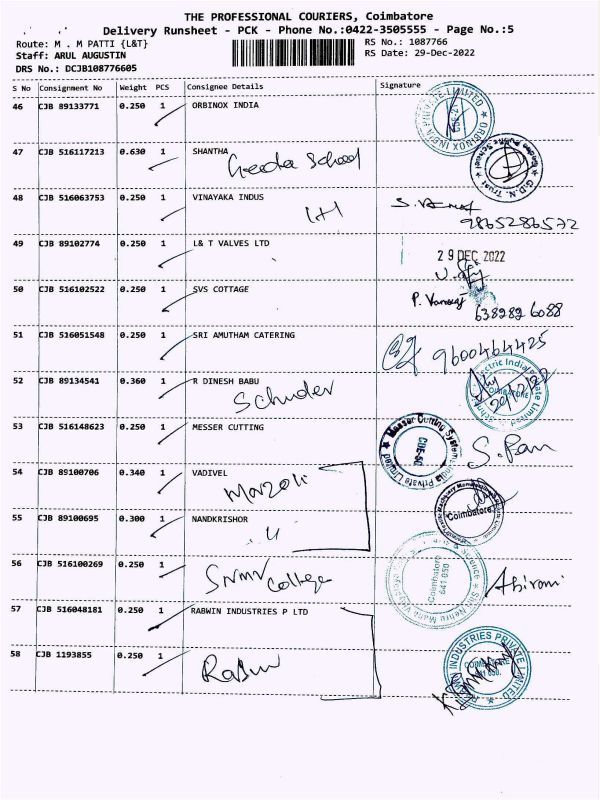 THE PROFESSIONAL COURIERS, Coimbatore
Delivery Runsheet - PCK - Phone No.:0422-3505555 - Page No.:5
Route: M . M PATTI {L&T}
RS No.: 1087766
Staff: ARUL AUGUSTIN
RS Date: 29-Dec-2022
DRS No.: DCJB108776605
S No Consignment No Weight PCS Consignee Details Signature
46 CJB 89133771 0.250 1 ORBINOX INDIA
47 CJB 516117213 0.630 1 SHANTHA
Geeda School
G.D.N. Trust
48 CJB 516063753 0.250 1 VINAYAKA INDUS
9865286572
49 CJB 89102774 0.250 1 L& T VALVES LTD
29 DEC 2022
50 CJB 516102522 0.250 1 SVS COTTAGE
6382826088
51 CJB 516051548 0.250 1 SRI AMUTHAM CATERING
9600464425
52 CJB 89134541 0.360 1 R DINESH BABU
53 CJB 516148623 0.250 1 MESSER CUTTING
54 CJB 89100706 0.340 1 VADIVEL
55 CJB 89100695 0.300 1 NANDKRISHOR
Coimbatore
56 CJB 516100269 0.250 1
SNMV College
Coimbatore
641 050
Abirami
57 CJB 516048181 0.250 1 RABWIN INDUSTRIES P LTD
58 CJB 1193855 0.250 1
Rabwin